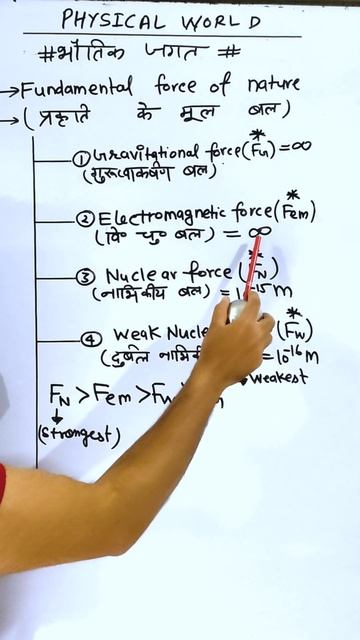 PHYSICAL WORLD
#भौतिक जगत #
→Fundamental force of nature
→(प्रकृति के मूल बल)
① Gravitational force(F̽G)=∞
(गुरूत्वाकर्षण बल)
② Electromagnetic force(Fem)
(वि० चु० बल) = ∞
③ Nuclear force (FN)
(नाभिकीय बल) = 10-15m
④ Weak (Fw)
(दुर्बल =10-16m
FN > Fem > Fw
weakest
(strongest)